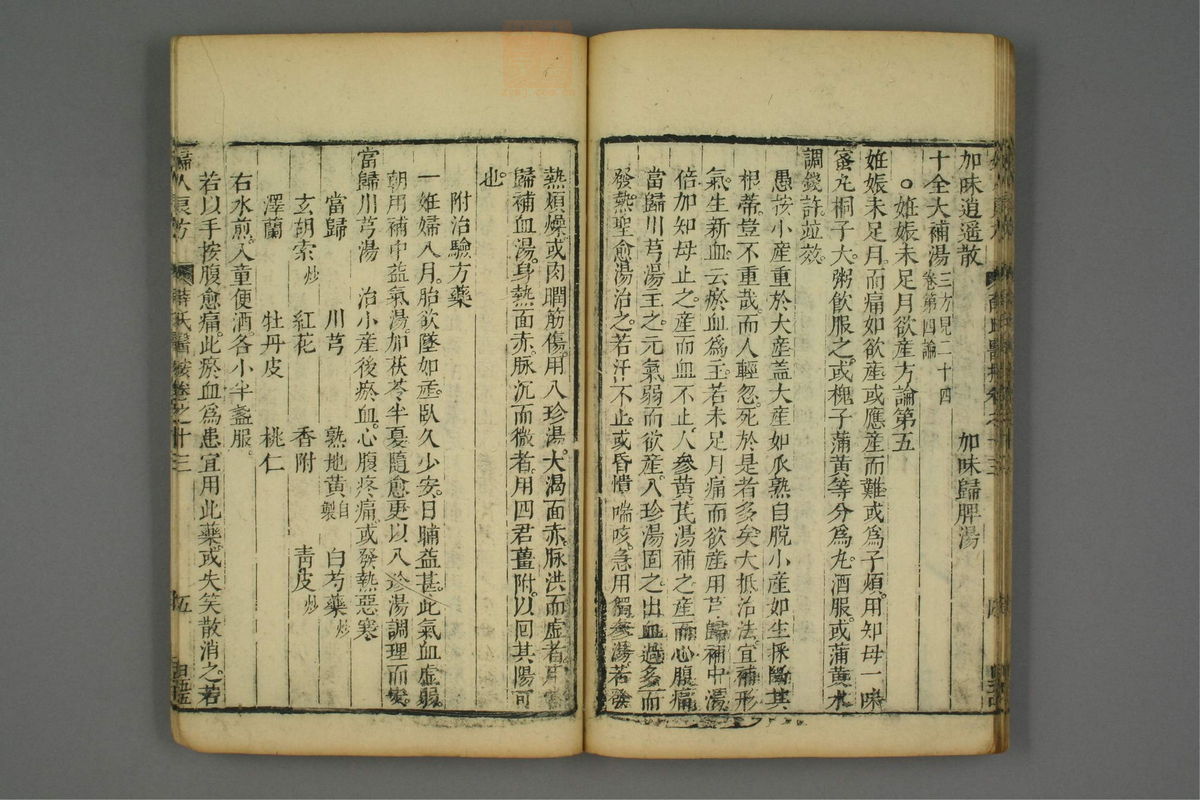 加味逍遙散 加味歸脾湯
十全大補湯 三方見二十四卷第四論
○姙娠未足月欲産方論第五
姙娠未足月而痛如欲産或應産而難或爲子煩用知母一味
蜜丸桐子大粥飲服之或槐子蒲黄等分爲丸酒服或蒲黄水
調錢許竝效
愚按小産重於大産盖大産如瓜熟自脱小産如生採斷其
根蒂豈不重哉而人輕忽死於是者多矣大抵治法宜補形
氣生新血去瘀血爲主若未足月痛而欲産用芎歸補中湯
倍加知母止之産而血不止人參黄芪湯補之産而心腹痛
當歸川芎湯主之元氣弱而欲産八珍湯固之出血過多而
發熱聖愈湯治之若汗不止或昏憒喘咳急用獨參湯若發
熱煩燥或肉瞤筋傷用八珍湯大渴面赤脉洪而虚者用當
歸補血湯身熱面赤脉沉而微者用四君薑附以回其陽可
也
附治驗方藥
一姙婦八月胎欲墜如丞臥久少安日晡益甚此氣血虚弱
朝用補中益氣湯加茯苓半夏隨愈更以八珍湯調理而安
當歸川芎湯 治小産後瘀血心腹疼痛或發熱惡寒
當歸 川芎 熟地黄自製 白芍藥炒
玄胡索炒 紅花 香附 青皮炒
澤蘭 牡丹皮 桃仁
右水煎入童便酒各小半盞服
若以手按腹愈痛此瘀血爲患宜用此藥或失笑散消之若
婦人良方 薛氏醫按卷之十三 五